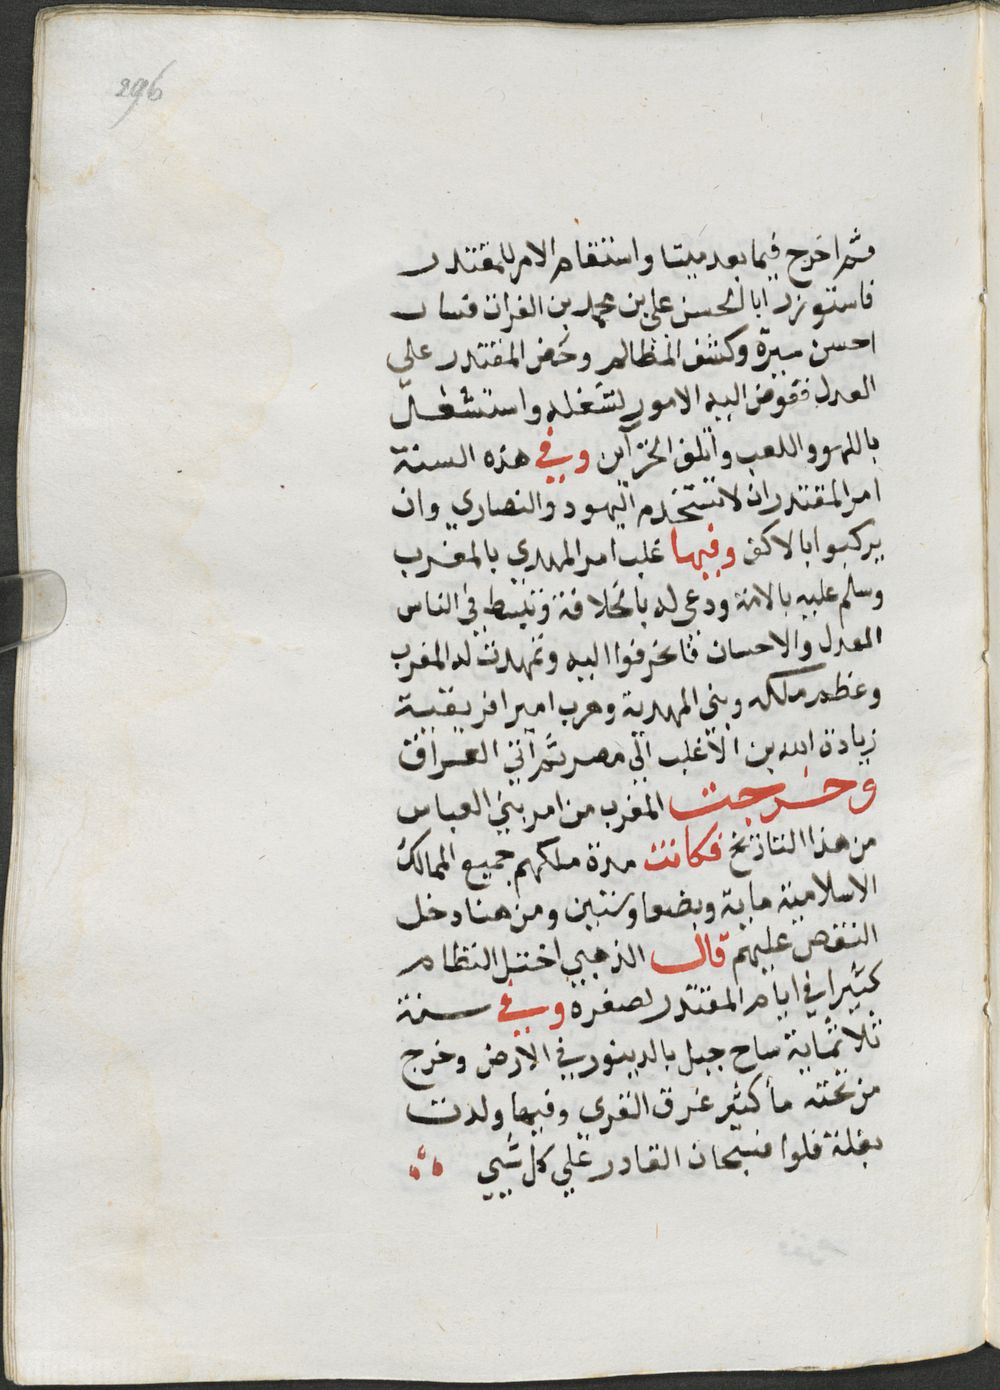 296
ثم اخرج فيما بعد ميتا واستقام الامر للمقتدر
فاستوزر ابا الحسن علي بن محمد بن الفرات فسار
احسن سيرة وكشف المظالم وحض المقتدر علي
العدل ففوض اليه الامور لشغله واستشغل
باللهو واللعب واتلف الخزآين وفي هذه السنة
امر المقتدر ان لا تستخدم اليهود والنصاري وان
يركبوا بالاكف وفيها غلب امر المهدي بالمغرب
وسلم عليه بالامة ودعي له بالخلافة وبسط في الناس
العدل والاحسان فانحرفوا اليه وتمهدت له المغرب
وعظم ملكه وبني المهدية وهرب امير افريقية
زيادة الله بن الاغلب الي مصر ثم آتي العراق
وخرجت المغرب من امر بني العباس
من هذا التاريخ فكانت مدة ملكهم جميع الممالك
الاسلامية ماية وبضعا وستين ومن هنا دخل
النقص عليهم قال الذهبي اختل النظام
كثيرا في ايام المقتدر لصغره وفي سنة
ثلاثماية ساح جبل بالدينور في الارض وخرج
من تحته ما كثير غرق القري وفيها ولدت
بغلة فلوا فسبحان القادر علي كل شيي